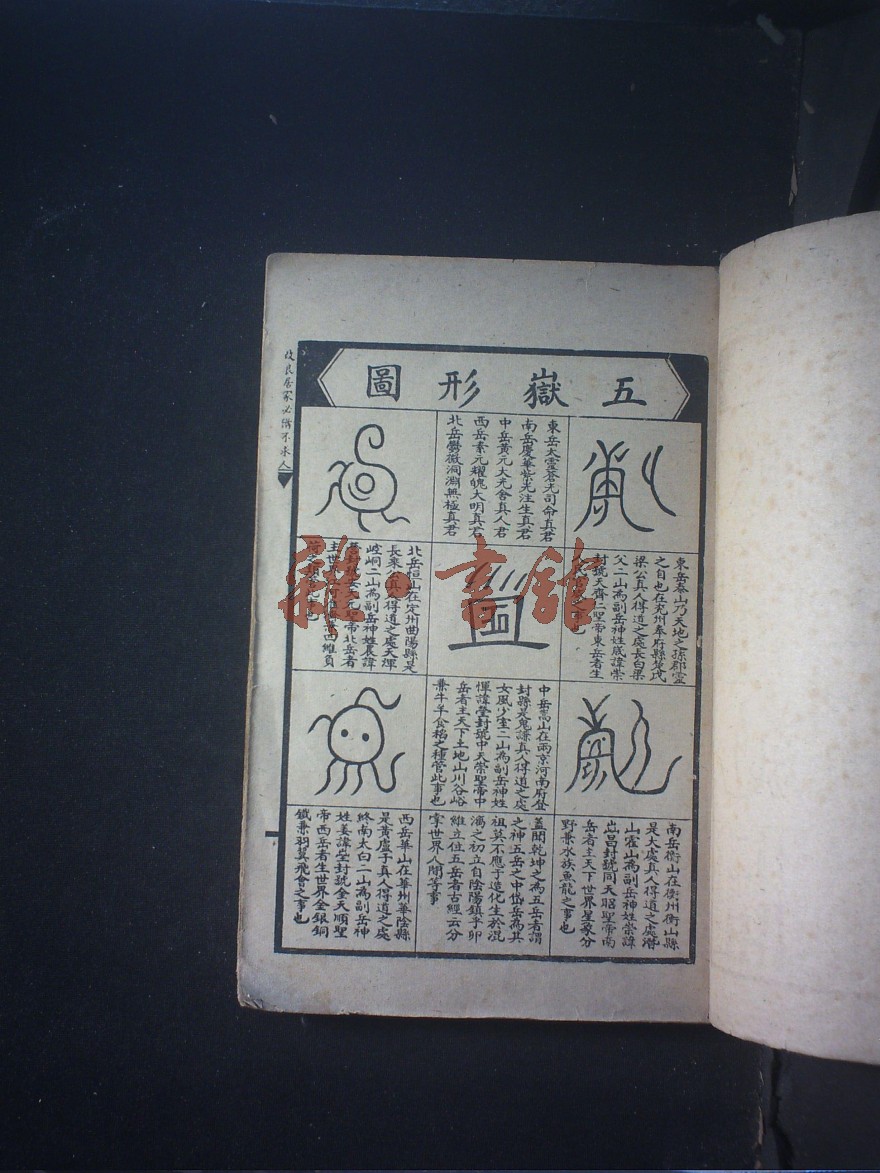 五嶽形圖
東岳太靈蒼光司命真君
南岳慶華紫光注生真君
中岳黃元大光含真人君
西岳素元耀魄大明真君
北岳鬱微洞淵無極真君
東岳泰山乃天地之孫郡靈
之自也在兗州奉府縣是
梁公真人得道之處長白梁
父二山為副岳神姓歲諱崇
封號天齊仁聖帝東岳者主
北岳恒山在定州曲陽縣是
長桑公真人得道之處天
崆峒二山為副岳神姓晨諱
中岳嵩山在兩京河南府登
封縣是鬼谷真人得道之處
女風少室二山為副岳神姓
惲諱瑩封號中天崇聖帝中
岳者主天下土地山川谷峪
兼牛羊食稻之種管此事也
南岳衡山在衡州衡山縣
是大虛真人得道之處潛
山霍山為副岳神姓崇諱
岳者主天下世界星象分
野兼水族魚龍之事也
蓋聞乾坤之為五岳者謂
之神五岳之中岱岳為其
祖莫不應于造化生於混
濁之初立自陰陽鎮乎卯
維立位五岳者古經云分
掌世界人間等事
西岳華山在華州華陰縣
是黃盧子真人得道之處
終南太白二山為副岳神
姓姜諱瑩封號金天順聖
帝西岳者主世界金銀銅
鐵兼羽翼飛會之事也
改良居家必備不求人
雜·書館